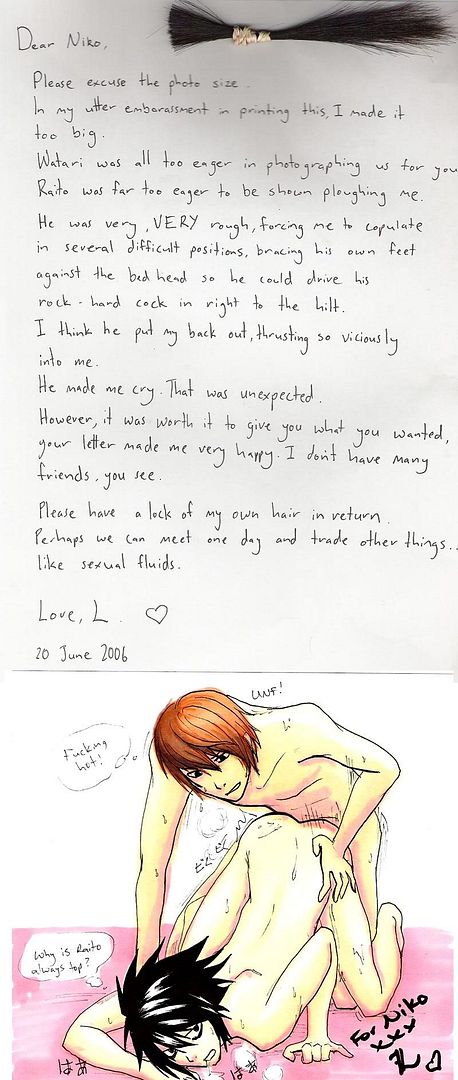 Dear Niko,
Please excuse the photo size.
In my utter embarassment in printing this, I made it
too big.
Watari was all too eager in photographing us for you
Raito was far too eager to be shown ploughing me.
He was very, VERY rough, forcing me to copulate
in several difficult positions, bracing his own feet
against the bed head so he could drive his
rock-hard cock in right to the hilt.
I think he put my back out, thrusting so viciously
into me.
He made me cry. That was unexpected.
However, it was worth it to give you what you wanted,
your letter made me very happy. I don't have many
friends, you see.
Please have a lock of my own hair in return.
Perhaps we can meet one day and trade other things..
like sexual fluids.
Love, L. ♡
20 June 2006
UNF!
Fucking
hot!
Why is Raito
always top?
はぁ
はぁ
For Niko
xxx